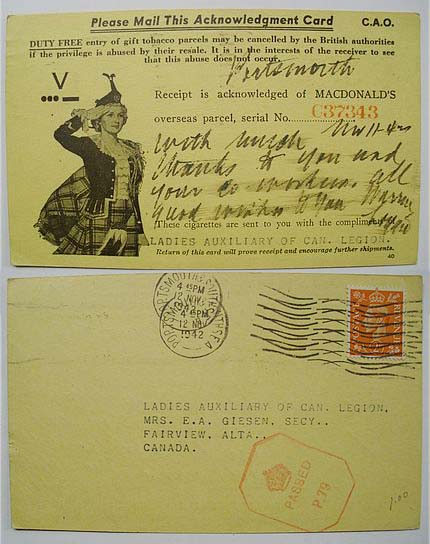 Please Mail This Acknowledgment Card C.A.O.
DUTY FREE entry of gift tobacco parcels may be cancelled by the British authorities
if the privilege is abused by their resale. It is in the interests of the receiver to see
that this abuse does not occur.
Portsmouth
V
Receipt is acknowledged of MACDONALD'S
overseas parcel, serial No. C37343
Nov 11 42
With much
thanks to you and
your co workers. All
good wishes to you
These cigarettes are sent to you with the compliments
LADIES AUXILIARY OF CAN. LEGION.
Return of this card will prove receipt and encourage further shipments.
40
PORTSMOUTH & SOUTHSEA
4 15PM
12 NOV
1942
4 15PM
12 NOV
1942
LADIES AUXILIARY OF CAN. LEGION.
MRS. E.A. GIESEN, SECY.,
FAIRVIEW, ALTA.,
CANADA.
PASSED
P.79
1.00